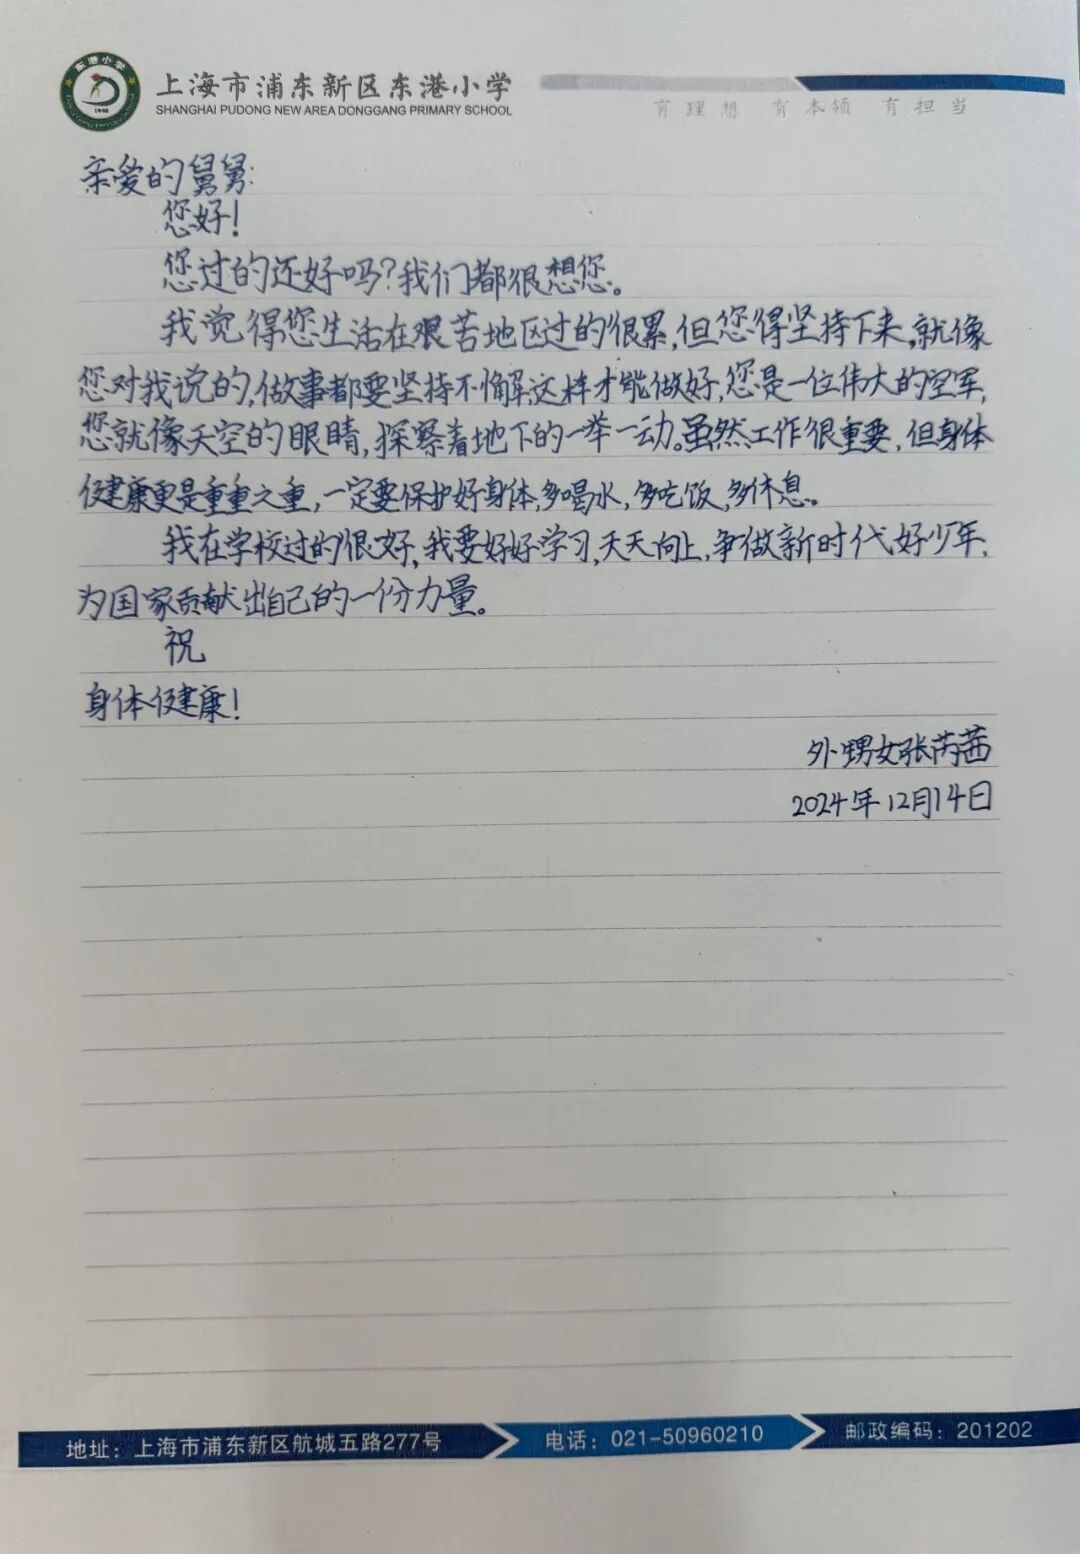 上海市浦东新区东港小学
SHANGHAI PUDONG NEW AREA DONGGANG PRIMARY SCHOOL
有理想 有本领 有担当
东港小学
亲爱的舅舅:
您好!
您过的还好吗?我们都很想您。
我觉得您生活在艰苦地区过的很累,但您得坚持下来,就像
您对我说的,做事都要坚持不懈,这样才能做好,您是一位伟大的空军,
您就像天空的眼睛,探察着地下的一举一动。虽然工作很重要,但身体
健康更是重重之重,一定要保护好身体,多喝水,多吃饭,多休息。
我在学校过的很好,我要好好学习,天天向上,争做新时代好少年,
为国家贡献出自己的一份力量。
祝
身体健康!
外甥女张芮茜
2024年12月14日
地址:上海市浦东新区航城五路277号 电话:021-50960210 邮政编码:201202